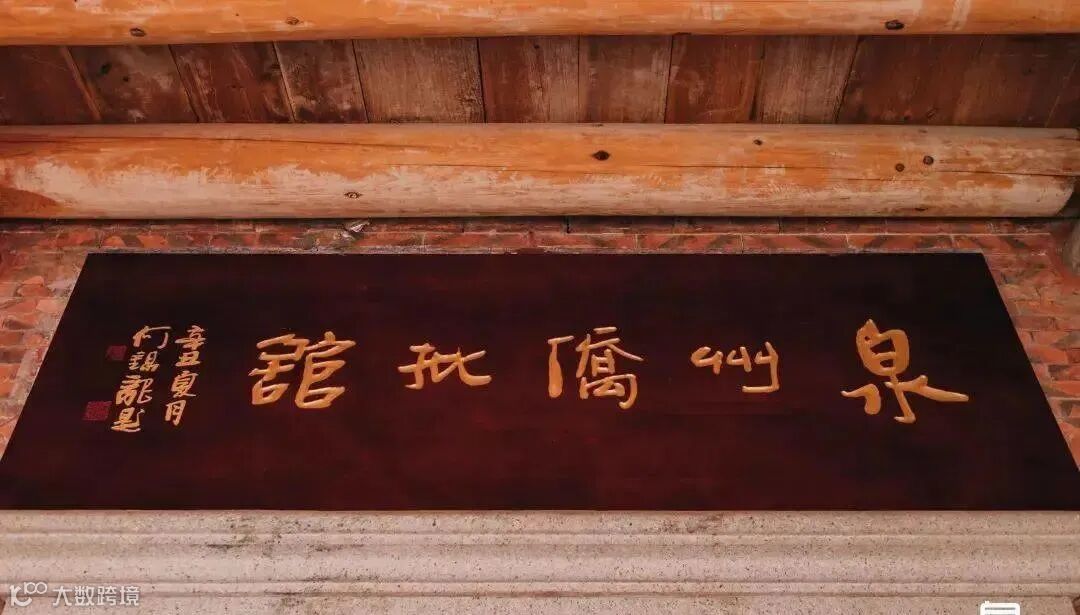 泉州僑批館
辛丑夏月
何錦龍題
大数跨境